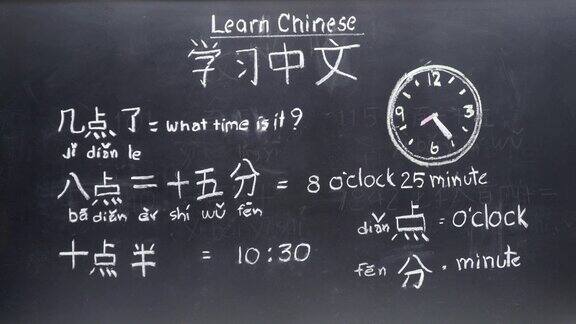 Learn Chinese
学习中文
几点了 = what time is it?
jǐ diǎn le
八点二十五分 = 8 o'clock 25 minute
bā diǎn èr shí wǔ fēn
十点半 = 10:30
12
3
6
9
diǎn 点 = o'clock
fēn 分 · minute